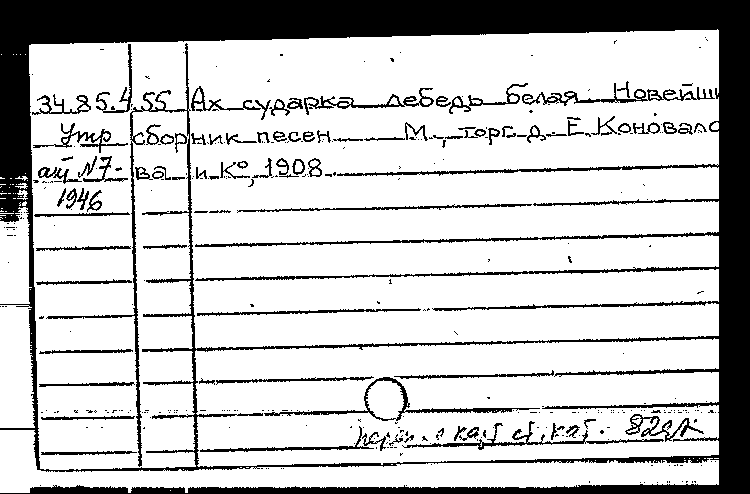 34.85.4.55 Ах сударка лебедь белая. Новейши
Утр сборник песен. М., торг. д. Е. Коновало
акт N7- ва и К°, 1908.
1946
с ст. кат. 82